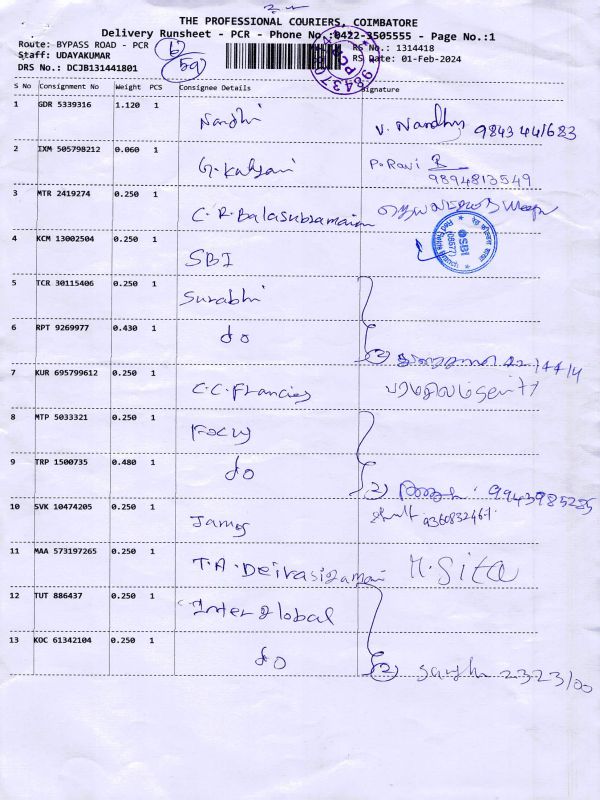 THE PROFESSIONAL COURIERS, COIMBATORE
Delivery Runsheet - PCR - Phone No.:0422-3505555 - Page No.:1
Route: BYPASS ROAD - PCR
RS No.: 1314418
Staff: UDAYAKUMAR
RS Date: 01-Feb-2024
DRS No.: DCJB131441801
S No Consignment No Weight PCS Consignee Details Signature
1 GDR 5339316 1.120 1 Nandhi V. Nandhy 9843441683
2 IXM 505798212 0.060 1 G. Kalyani P. Ravi
9894813549
3 MTR 2419274 0.250 1 C.R. Balasubramaiam
4 KCM 13002504 0.250 1 SBI
SBI
5 TCR 30115406 0.250 1 Surabhi
6 RPT 9269977 0.430 1 do (2)
7 KUR 695799612 0.250 1 C.C. Francies
8 MTP 5033321 0.250 1 Focus
9 TRP 1500735 0.480 1 do (2) 9943985285
10 SVK 10474205 0.250 1 James
11 MAA 573197265 0.250 1 T.A. Deivasigamai M. Sita
12 TUT 886437 0.250 1 Inter global
13 KOC 61342104 0.250 1 do (2) 2323100